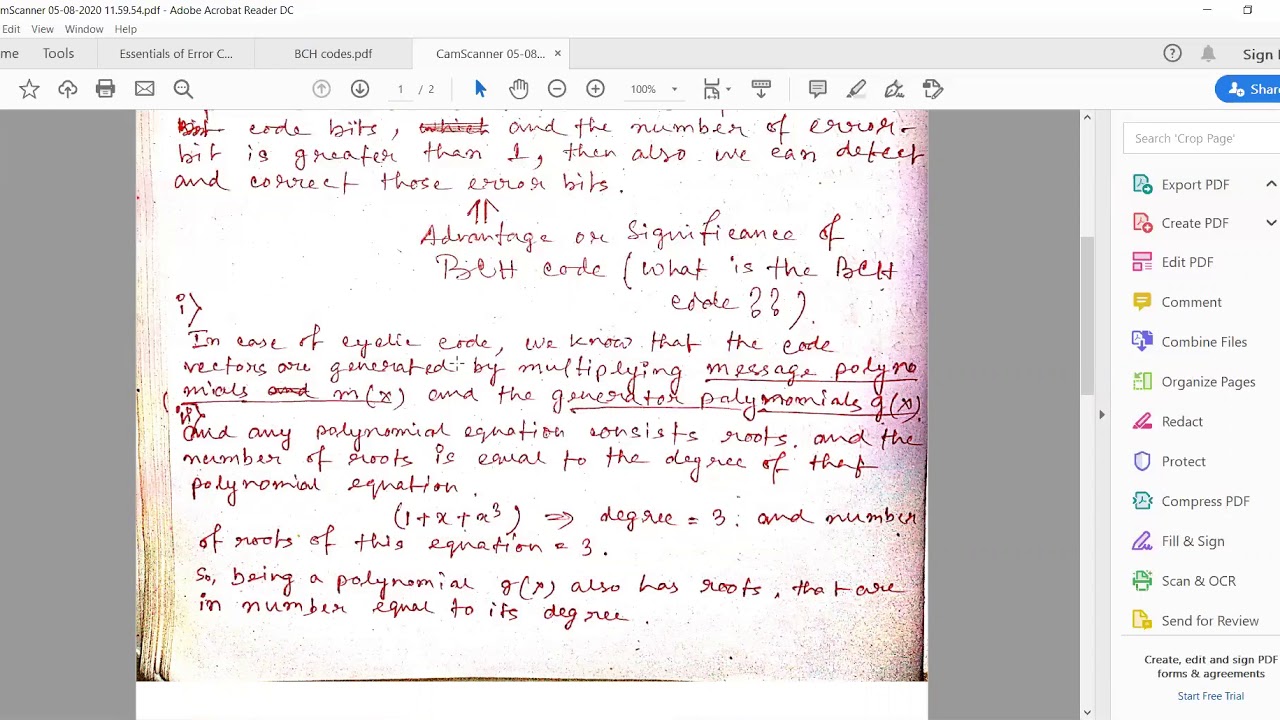 amScanner 05-08-2020 11.59.54.pdf - Adobe Acrobat Reader DC
Edit View Window Help
me Tools Essentials of Error C... BCH codes.pdf CamScanner 05-08... × Sign I
1 / 2 100% Share
code bits, and the number of error-
bit is greater than 1, then also we can detect
and correct those error bits.
⇑
Advantage or Significance of
BCH code (What is the BCH
code ??).
i>
In case of cyclic code, we know that the code
vectors are generated by multiplying message polyno
mials and m(x) and the generator polynomials g(x).
ii>
and any polynomial equation consists roots. and the
number of roots is equal to the degree of that
polynomial equation.
(1+x+x³) ⇒ degree = 3: and number
of roots of this equation = 3.
So, being a polynomial g(x) also has roots, that are
in number equal to its degree.
Search 'Crop Page'
Export PDF
Create PDF
Edit PDF
Comment
Combine Files
Organize Pages
Redact
Protect
Compress PDF
Fill & Sign
Scan & OCR
Send for Review
Create, edit and sign PDF
forms & agreements
Start Free Trial